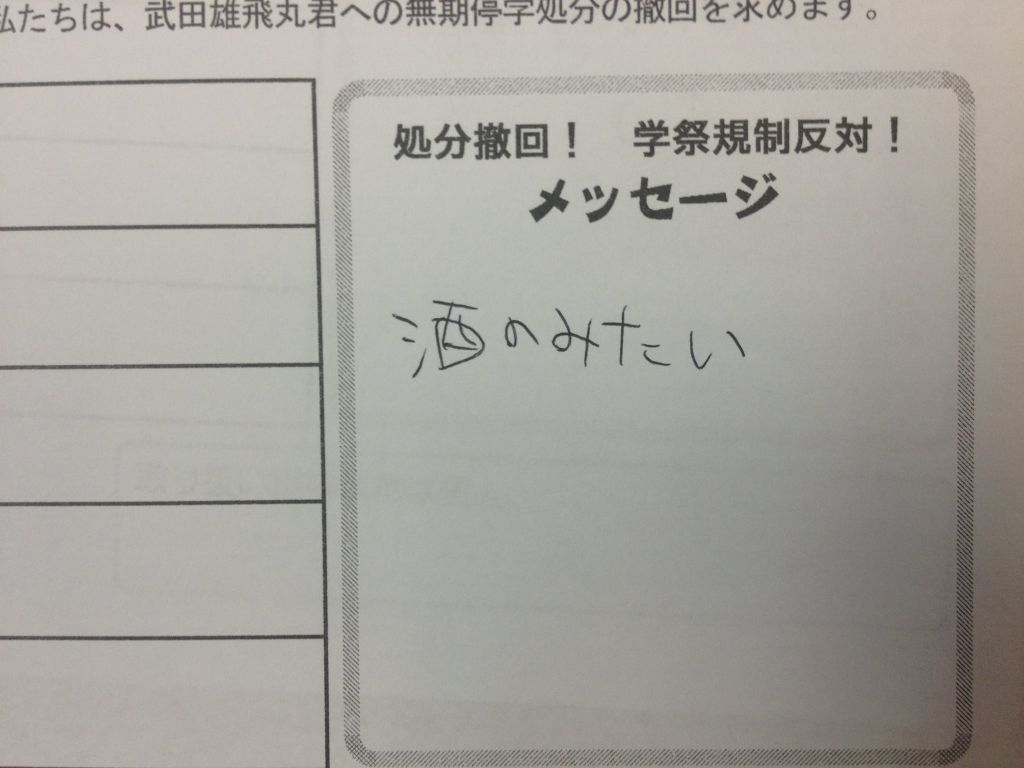 私たちは、武田雄飛丸君への無期停学処分の撤回を求めます。
処分撤回！　学祭規制反対！
メッセージ
酒のみたい